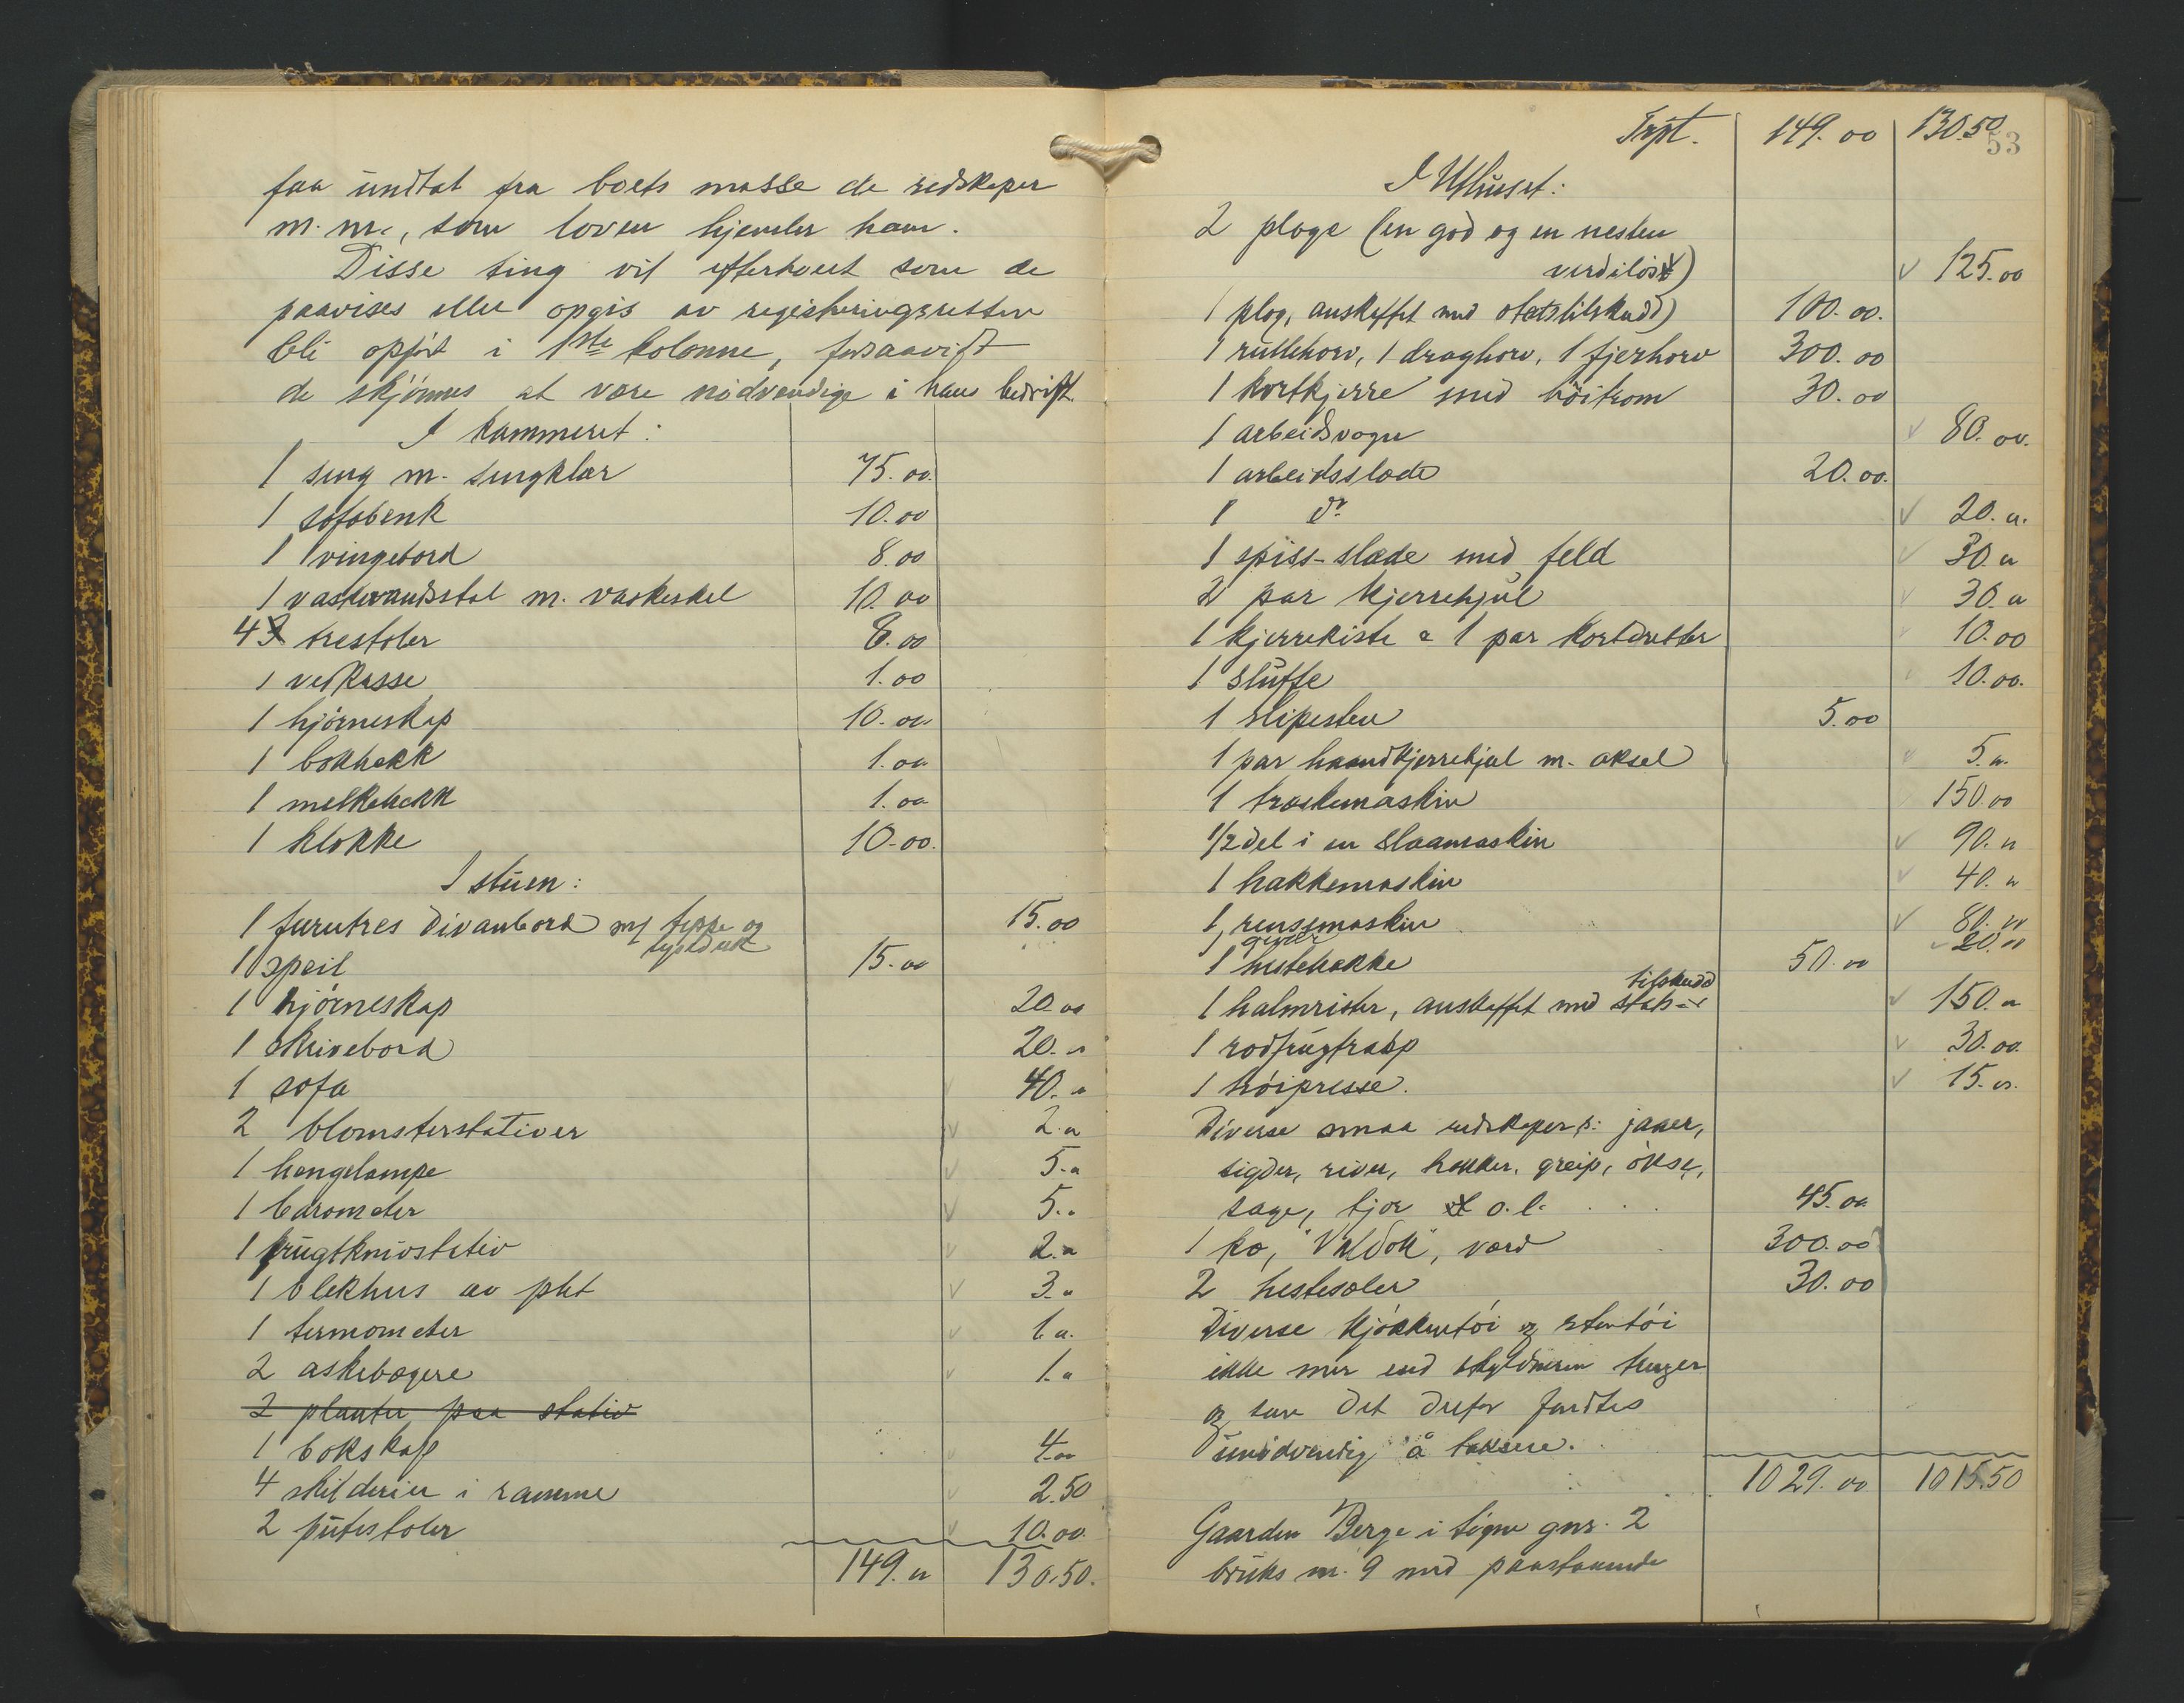 faa undtat fra boets masse de redskaper
m.m., som loven hjemler ham.
Disse ting vil efterhvert som de
paavises eller opgis av registreringsretten
bli opført i 1ste kolonne, forsaavidt
de skjønnes at være nødvendige i hans bedrift.
I kammeret:
1 seng m. sengklær 75.00
1 sofabenk 10.00
1 vingebord 8.00
1 vaskevandsstol m. vaskeskel 10.00
4 trestoler 8.00
1 vedkasse 1.00
1 hjørneskap 10.00
1 bokhekk 1.00
1 melkehekk 1.00
1 klokke 10.00
I stuen:
1 furutres divanbord m/ teppe og 15.00
lysduk
1 speil 15.00
1 hjørneskap 20.00
1 skrivebord 20.00
1 sofa 40.00
2 blomsterstativer 2.00
1 hengelampe 5.00
1 barometer 5.00
1 frugtknivstativ 2.00
1 blekhus av plet 3.00
1 termometer 1.00
2 askebægere 1.00
2 planter paa stativ
1 bokskap 4.00
4 skilderier i ramme 2.50
2 putestoler 10.00
149.00 130.50.
Trpt. 149.00 130.50
53
I Uthuset:
2 ploge (en god og en nesten
verdiløs) 125.00
1 plog, anskaffet med statstilskudd) 100.00
1 rulleharv, 1 dragharv, 1 fjerharv 300.00
1 kortkjerre med høitrom 30.00
1 arbeidsvogn 80.00
1 arbeidsslæde 20.00
1 do 20.00
1 spiss-slæde med feld 30.00
2 par kjerrehjul 30.00
1 kjerrekiste & 1 par kortdretter 10.00
1 sluffe 10.00
1 slipesten 5.00
1 par haandkjerrehjul m. aksel 5.00
1 træskemaskin 150.00
1/2 del i en slaamaskin 90.00
1 hakkemaskin 40.00
1 rensemaskin 80.00
1 gevær 20.00
1 hestehakke 50.00
1 halmrister, anskaffet med stats-
tilskudd 150.00
1 rodfrugtrasp 30.00
1 høipresse. 15.00
Diverse smaa redskaper s: jaaer,
sigder, river, hakker, greip, økse,
sage, tjor o.l. 45.00
1 ko, "Valdok", værd 300.00
2 hestesæler 30.00
Diverse kjøkkentøi og stentøi
ikke mer end skyldneren trenger
og som det derfor fandtes
unødvendig å taksere.
1029.00 1015.50
Gaarden Berge i Søgne gnr. 2
bruks nr. 9 med paastaaende